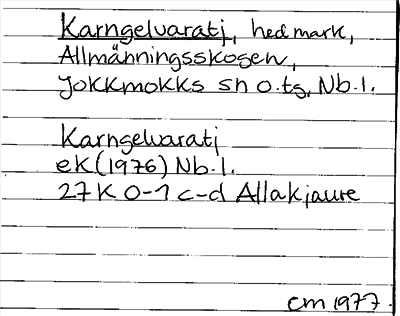 Karngelvaratj, hedmark,
Allmänningsskogen,
Jokkmokks sn o.ts, Nb.l.
Karngelvaratj
ek (1976) Nb.l.
27K 0-1 c-d Allakjaure
CM 1977.